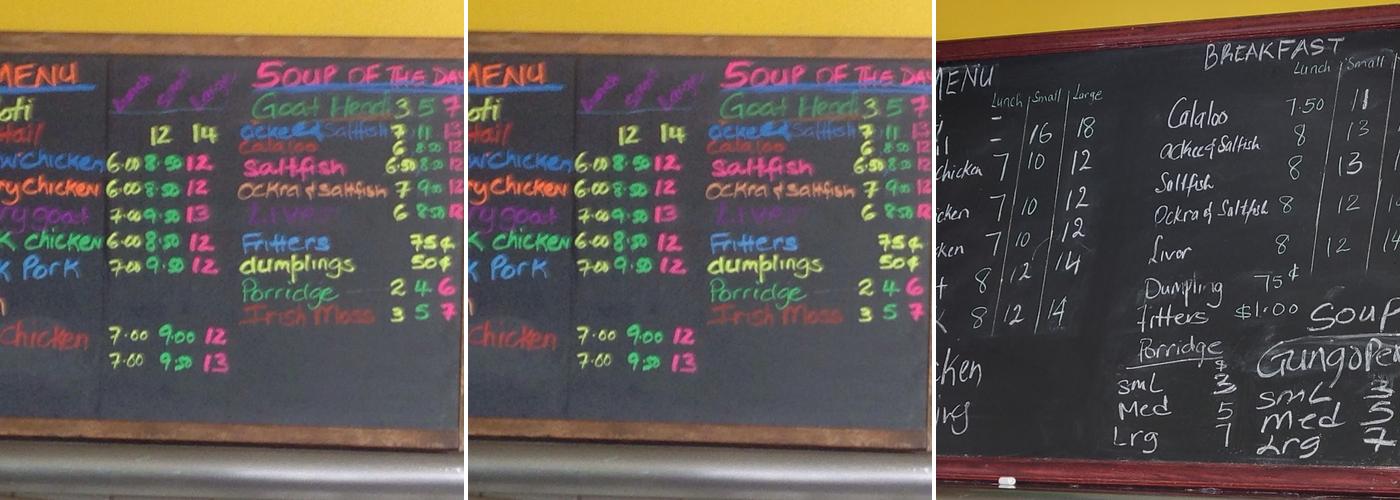 MENU
Lunch Small Large
oti
tail 12 14
w chicken 6.00 8.50 12
ry chicken 6.00 8.50 12
ry goat 7.00 9.50 13
k chicken 6.00 8.50 12
k Pork 7.00 9.50 12
n
chicken 7.00 9.00 12
7.00 9.50 13
SOUP OF THE DAY
Goat Head 3 5 7
ackee & Saltfish 7 11 13
Calaloo 6 8.50 12
Saltfish 6.50 8.50 12
Ockra & Saltfish 7 9.00 12
Liver 6 8.50 12
Fritters 75¢
dumplings 50¢
Porridge 2 4 6
Irish Moss 3 5 7
MENU
Lunch Small Large
oti
tail 12 14
w chicken 6.00 8.50 12
ry chicken 6.00 8.50 12
ry goat 7.00 9.50 13
k chicken 6.00 8.50 12
k Pork 7.00 9.50 12
n
chicken 7.00 9.00 12
7.00 9.50 13
SOUP OF THE DAY
Goat Head 3 5 7
ackee & Saltfish 7 11 13
Calaloo 6 8.50 12
Saltfish 6.50 8.50 12
Ockra & Saltfish 7 9.00 12
Liver 6 8.50 12
Fritters 75¢
dumplings 50¢
Porridge 2 4 6
Irish Moss 3 5 7
MENU
Lunch Small Large
-
l - 16 18
chicken 7 10 12
cken 7 10 12
ken 7 10 12
t 8 12 14
k 8 12 14
cken
ing
BREAKFAST
Lunch Small
Calaloo 7.50 11
ackee & Saltfish 8 13
Saltfish 8 13
Ockra & Saltfish 8 12
Livor 8 12 14
Dumpling 75¢
fritters $1.00
Porridge
$
smL 3
Med 5
Lrg 7
Soup
GungoPe
smL 3
med 5
Lrg 7